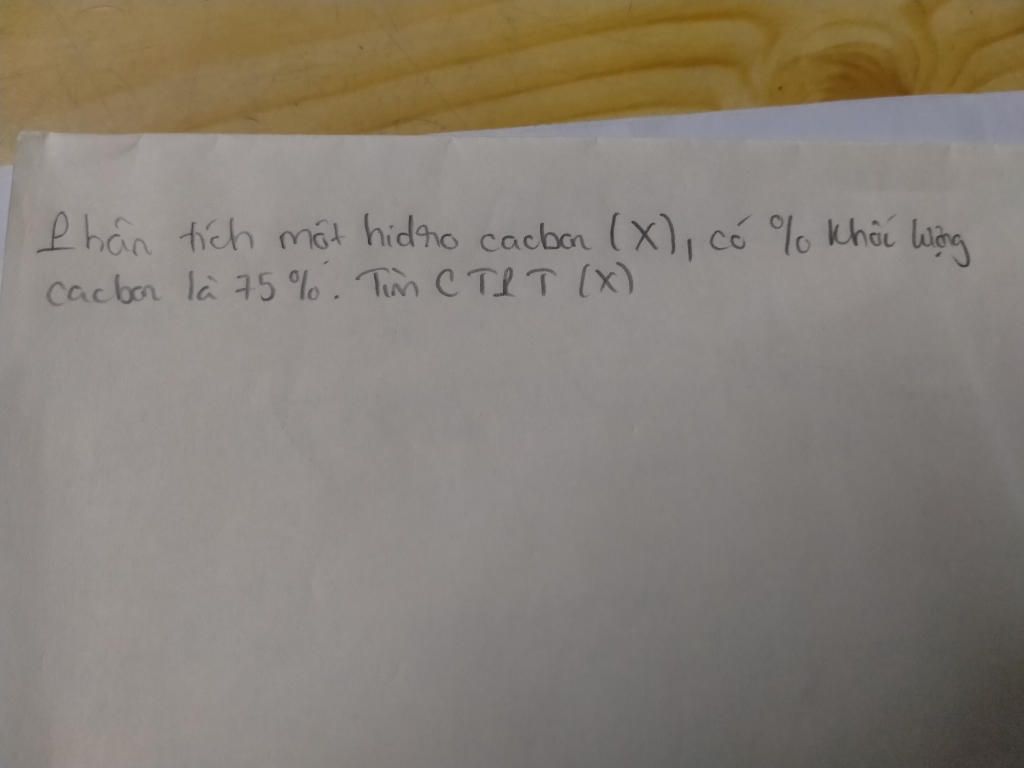 Phân tích một hidro cacbon (X), có % khối lượng
cacbon là 75%. Tìm CTPT (X)